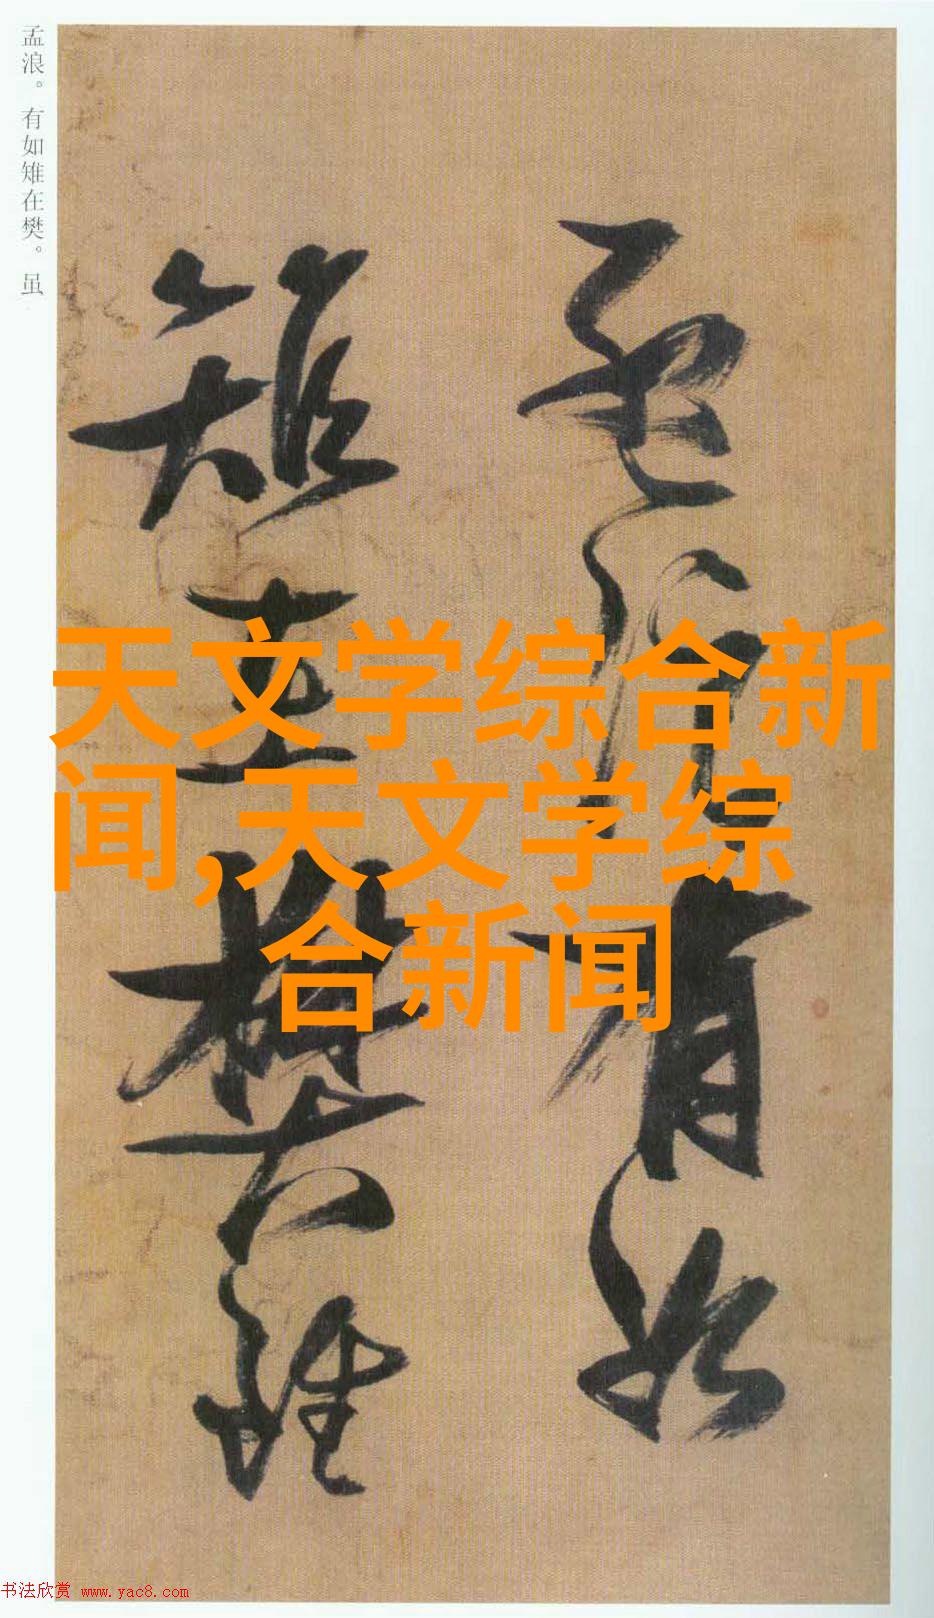 孟浪。有如雉在樊。虽
孟浪有如
雉在樊雖
天文学综合新
闻,天文学综
合新闻
书法欣赏 www.yac8.com